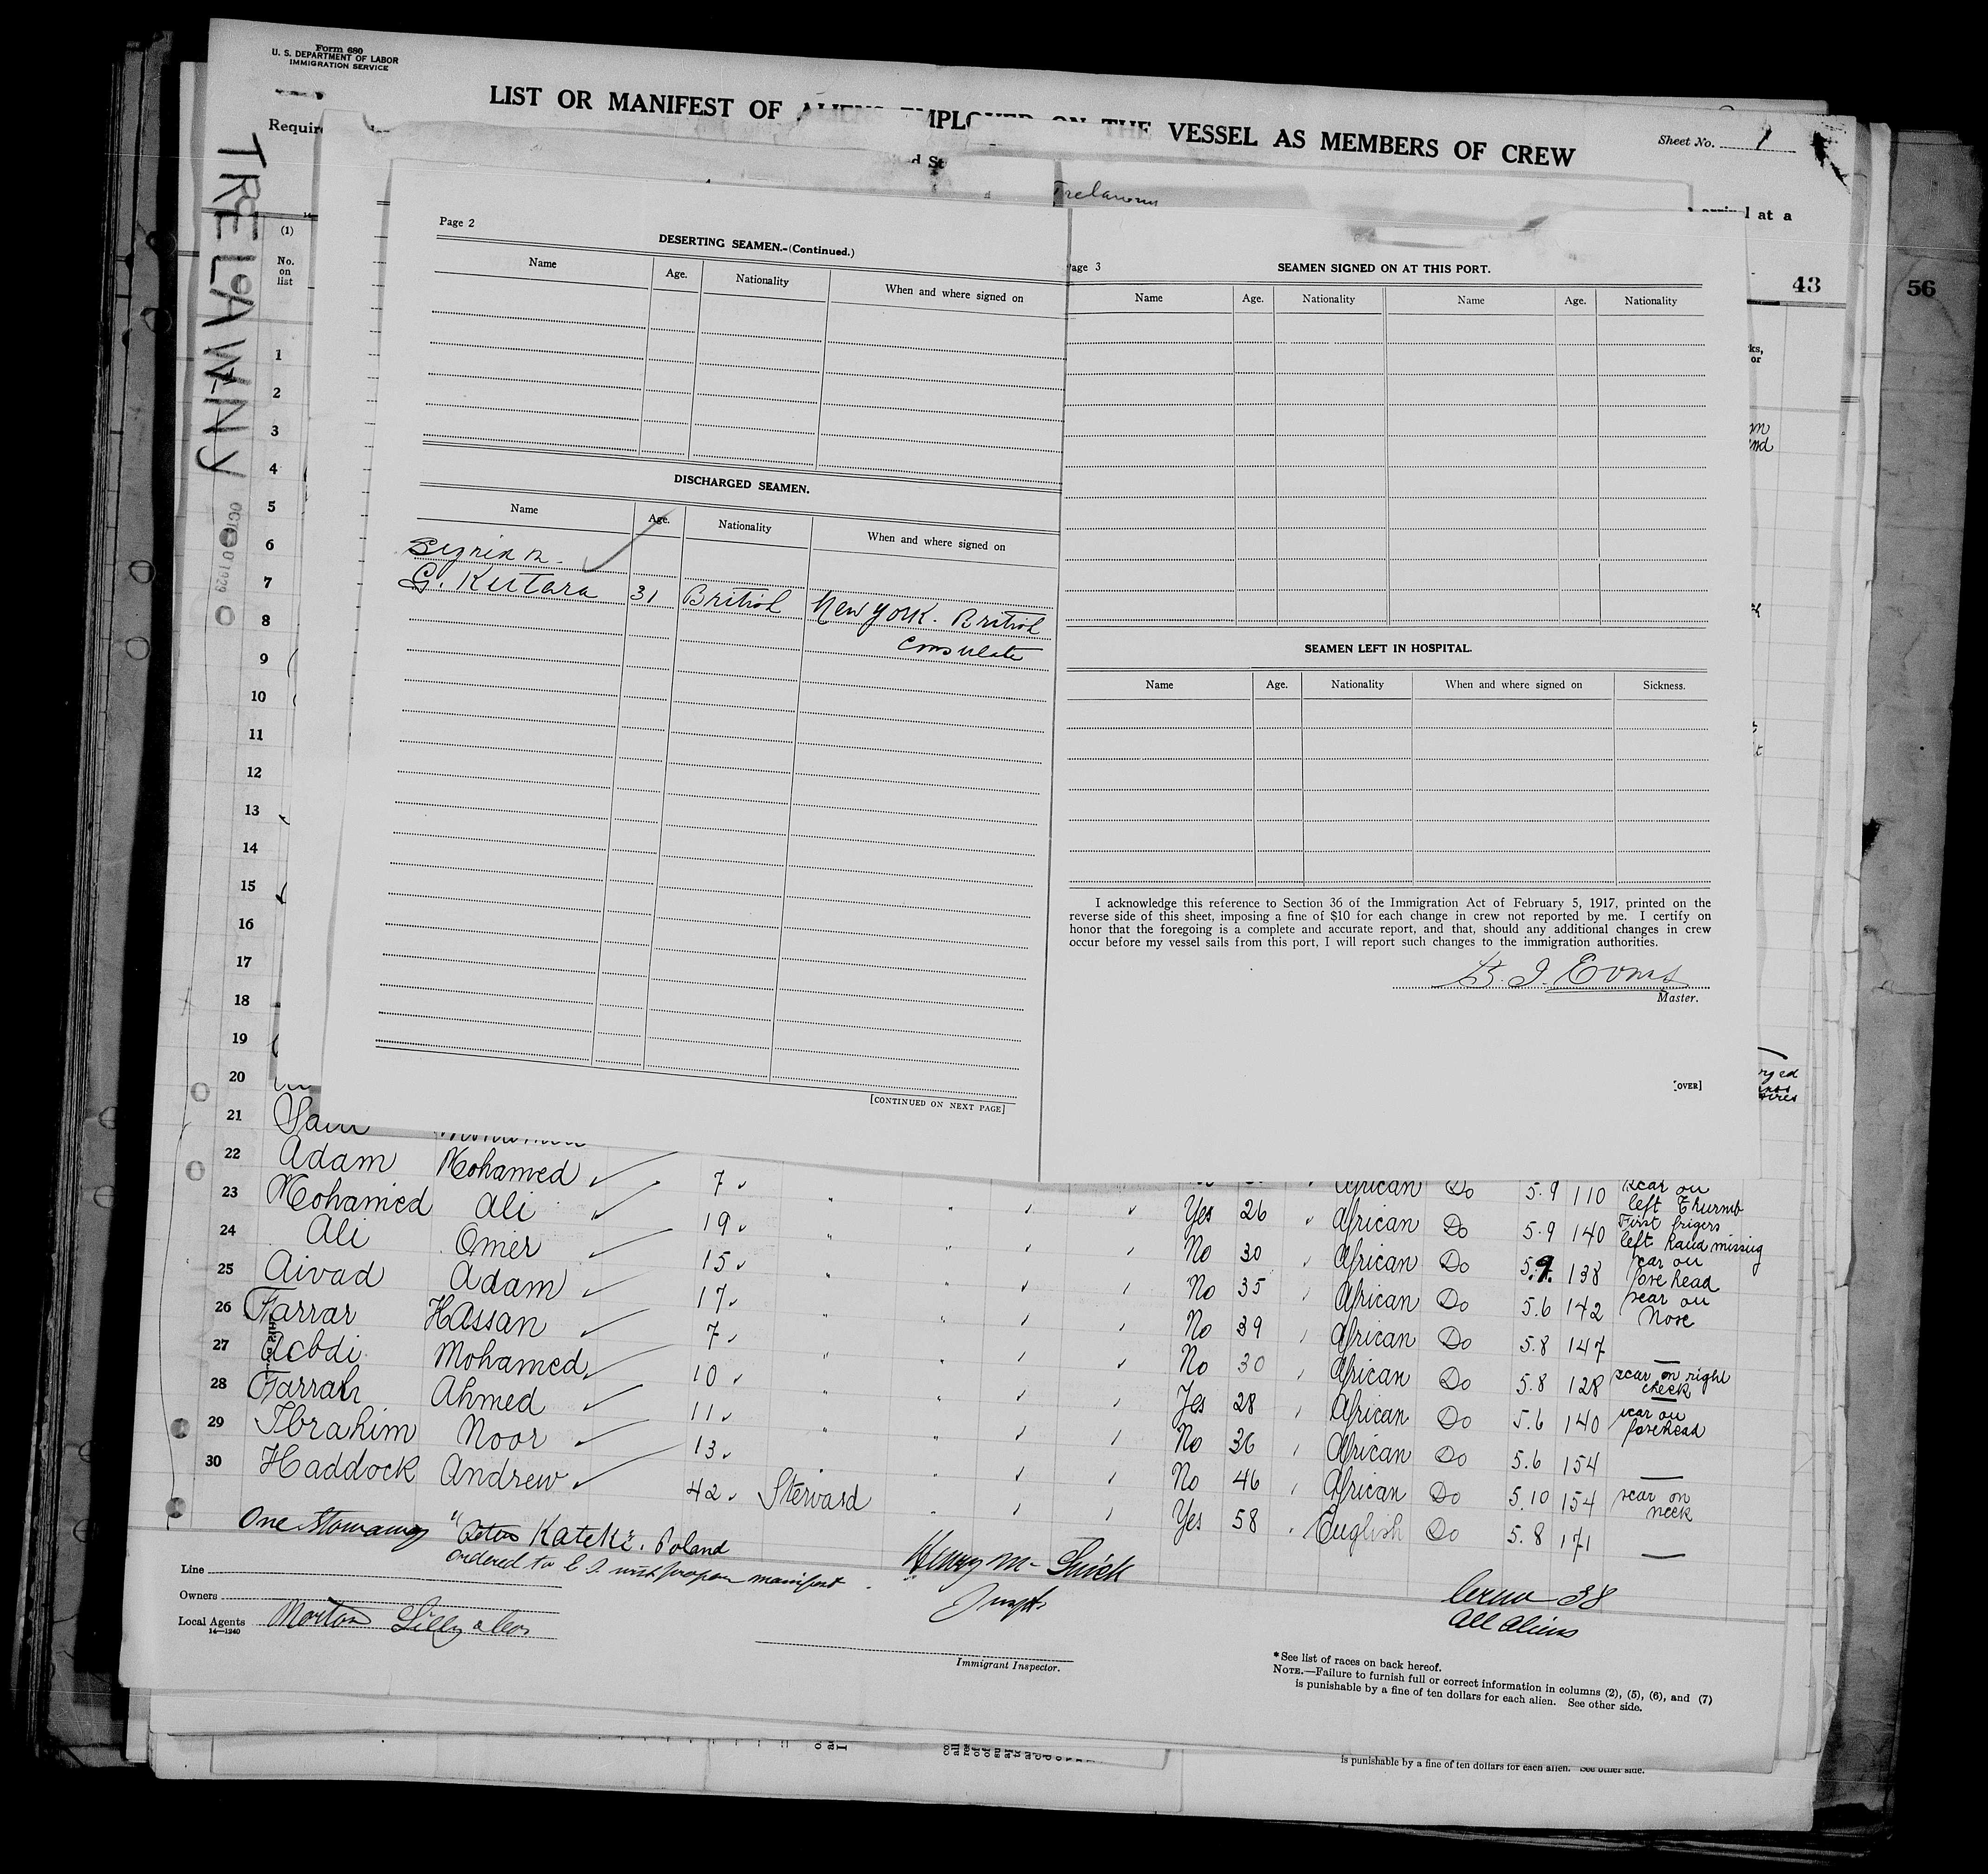 Form 680
U. S. DEPARTMENT OF LABOR
IMMIGRATION SERVICE
LIST OR MANIFEST OF ALIENS EMPLOYED ON THE VESSEL AS MEMBERS OF CREW
Sheet No. 1
TRELAWNY
arrival at a
43
56
(1)
No.
on
list
1
2
3
4
5
6
7
8
9
10
11
12
13
14
15
16
17
18
19
20
Page 2
DESERTING SEAMEN.-(Continued.)
Name Age. Nationality When and where signed on
DISCHARGED SEAMEN.
Name Age. Nationality When and where signed on
G. Kutara 31 British New York. British
Consulate
[CONTINUED ON NEXT PAGE]
Page 3
SEAMEN SIGNED ON AT THIS PORT.
Name Age. Nationality Name Age. Nationality
SEAMEN LEFT IN HOSPITAL.
Name Age. Nationality When and where signed on Sickness.
I acknowledge this reference to Section 36 of the Immigration Act of February 5, 1917, printed on the
reverse side of this sheet, imposing a fine of $10 for each change in crew not reported by me. I certify on
honor that the foregoing is a complete and accurate report, and that, should any additional changes in crew
occur before my vessel sails from this port, I will report such changes to the immigration authorities.
B. J. Evans
Master.
[OVER]
21
22 Adam Mohamed 7 African Do 5.9 110 scar on left Thumb
23 Mohamed Ali 19 Yes 26 African Do 5.9 140 First fingers left hand missing
24 Ali Omer 15 No 30 African Do 5.9. 138 scar on forehead
25 Aivad Adam 17 No 35 African Do 5.6 142 scar on Nose
26 Farrar Hassan 7 No 39 African Do 5.8 147 —
27 Acbdi Mohamed 10 No 30 African Do 5.8 128 scar on right cheek
28 Farrah Ahmed 11 Yes 28 African Do 5.6 140 scar on forehead
29 Ibrahim Noor 13 No 36 African Do 5.6 154 —
No 46 African Do 5.10 154 scar on neck
30 Haddock Andrew 42 Steward Yes 58 English Do 5.8 171 —
One Stowaway "Peter Kateke. Poland
ordered to E. I. with proper manifest.
Line
Owners
Local Agents Morton Lilly & Co
14—1240
Immigrant Inspector.
38
All Aliens
*See list of races on back hereof.
NOTE.—Failure to furnish full or correct information in columns (2), (5), (6), and (7)
is punishable by a fine of ten dollars for each alien. See other side.
is punishable by a fine of ten dollars for each alien. See other side.